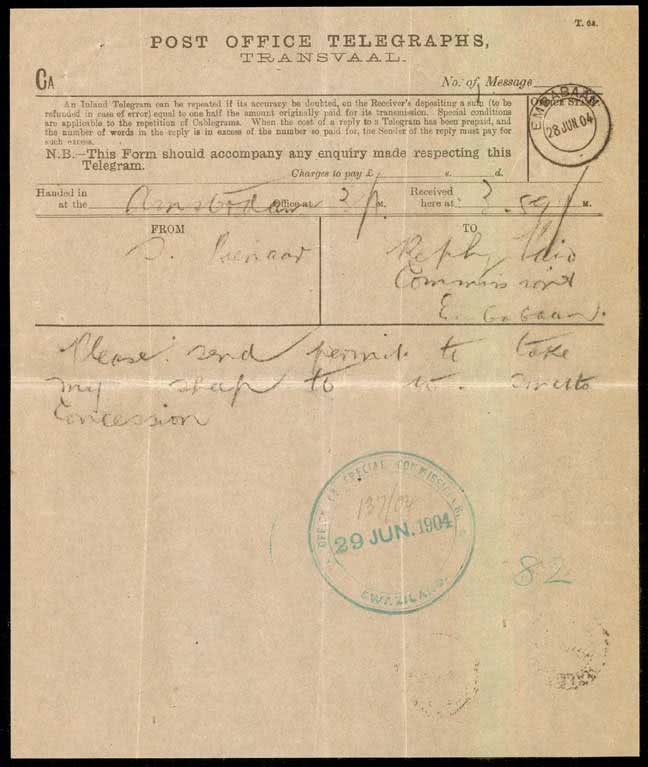 T. 04.
POST OFFICE TELEGRAPHS,
TRANSVAAL.
CA
No. of Message
An Inland Telegram can be repeated if its accuracy be doubted, on the Receiver's depositing a sum (to be
refunded in case of error) equal to one half the amount originally paid for its transmission. Special conditions
are applicable to the repetition of Cablegrams. When the cost of a reply to a Telegram has been prepaid, and
the number of words in the reply is in excess of the number so paid for, the Sender of the reply must pay for
such excess.
N.B.—This Form should accompany any enquiry made respecting this
Telegram.
Charges to pay £ s. d.
OFFICE STAMP
EMBABAAN
28 JUN 04
Handed in
at the Office at M. Received
here at M.
FROM
TO
Reply Paid
Commissioner
Embabaan.
Please send permit to take
my sheep to
Concession
OFFICE OF SPECIAL COMMISSIONER,
137/04
29 JUN. 1904
SWAZILAND.
82